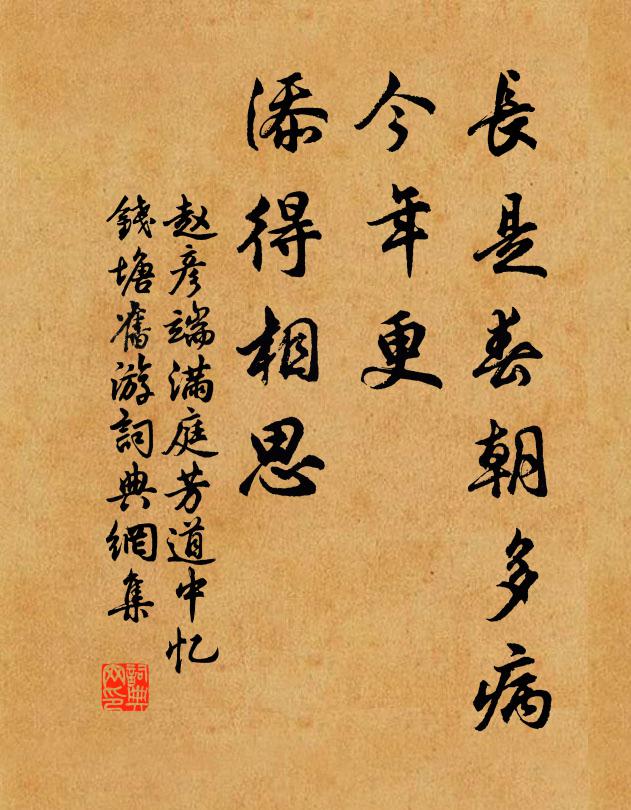 長是春朝多病
今年更
添得相思
赵彦端满庭芳道中忆
錢塘舊游詞典網集
詞典
网印